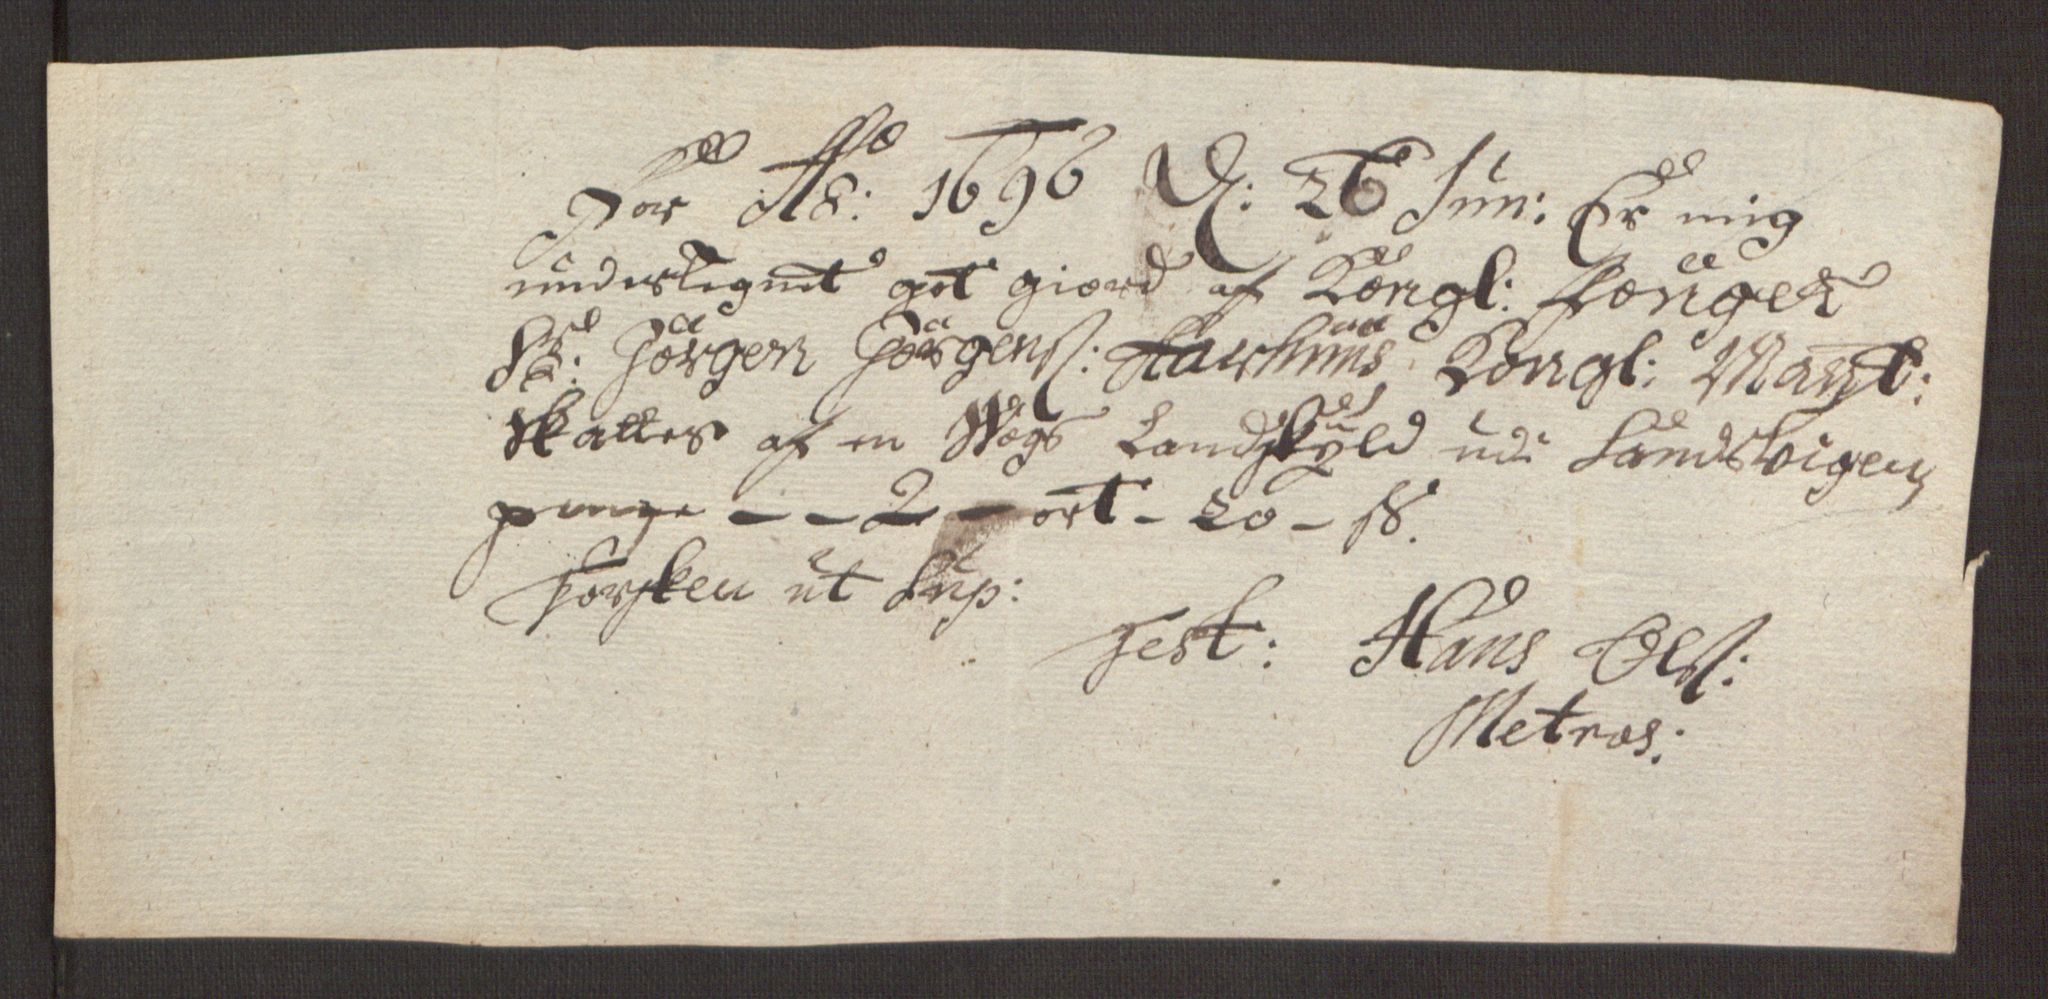 For Ao: 1696 D: 26 Jun: Er mig
underteignet got giord af Kongl: 
Sr: Jørgen Jørgenß: Kongl: Mayt:
skatter af en Wogs Landskyld udi Sandtvigen
penge - - 2 - ort - 20 - ß.
Torsken ut Sup:
Test: Hans Olß:
Metros: